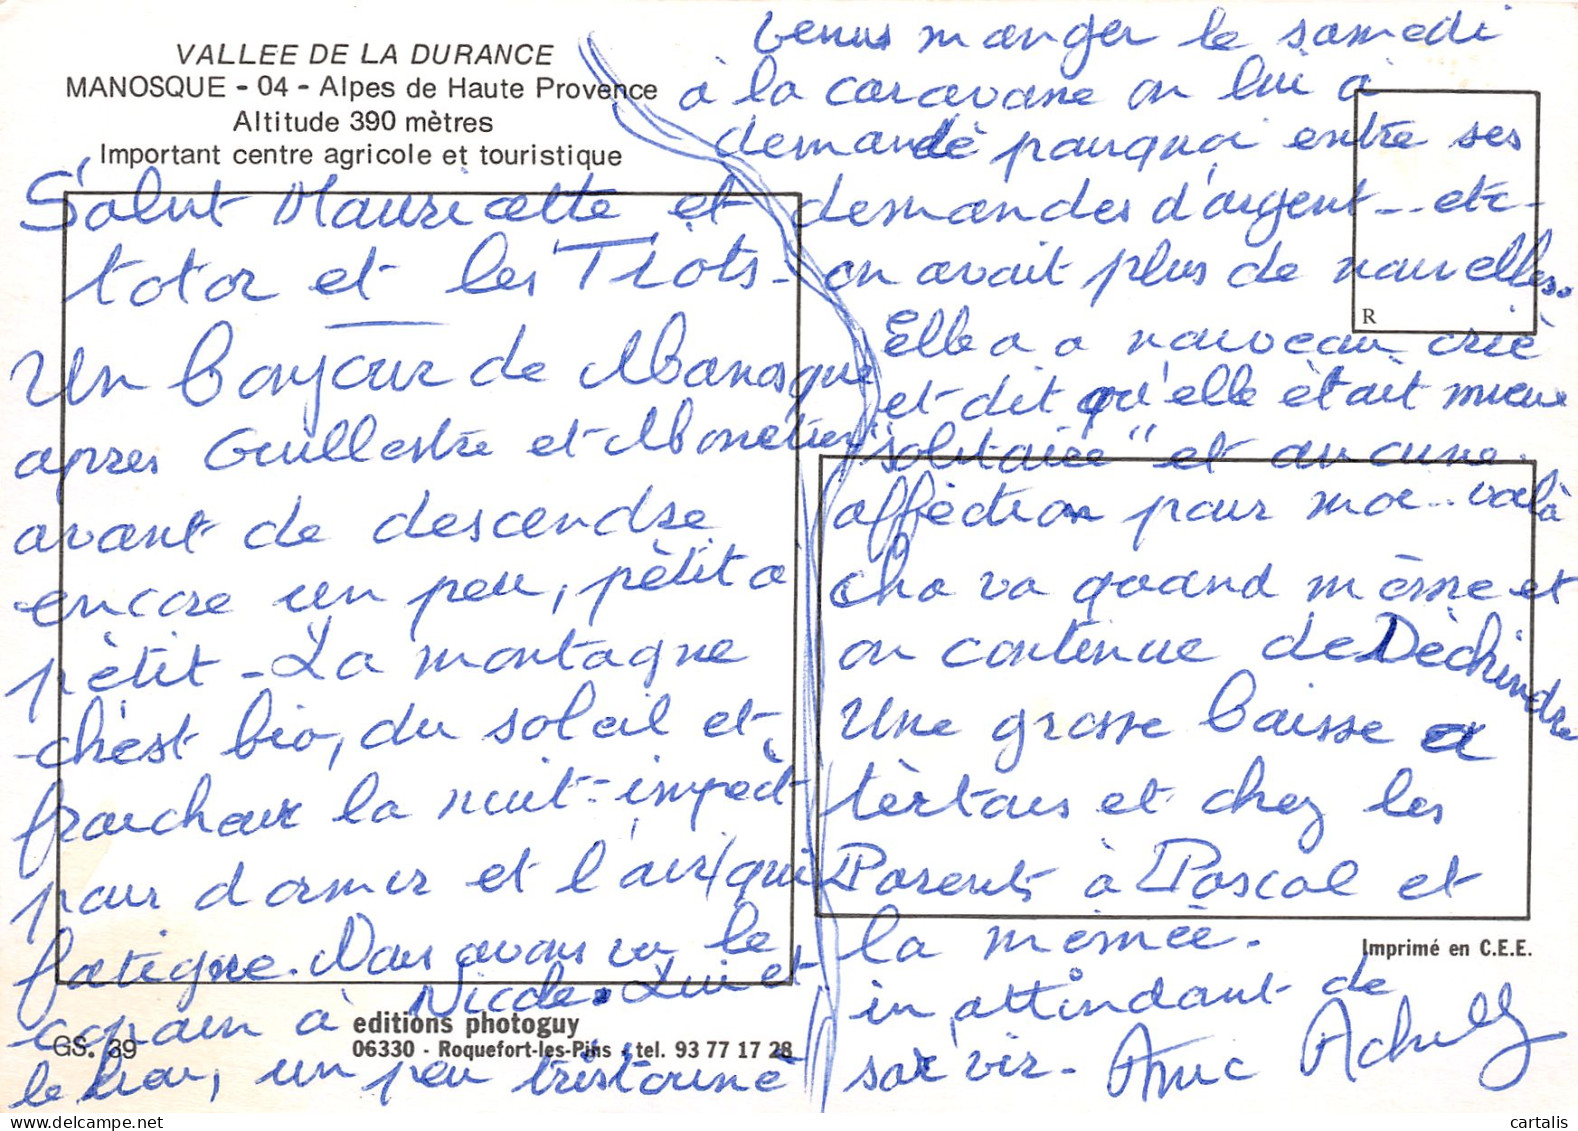 VALLEE DE LA DURANCE
MANOSQUE - 04 - Alpes de Haute Provence
Altitude 390 mètres
Important centre agricole et touristique
Salut Mauricette et
totor et les Tiots -
Un bonjour de Manosque
apres Guillestre et Monetier
avant de descendre
encore un peu, pètit a
pètit - La montagne
ch'est bio, du soleil et
fraicheur la nuit - impect
pour dormir et l'air (qui
fatigue. Nous avons vu le
copain à Nicole. Lui et
le sien, un peu tristouné
venus manger le samedi
à la caravane on lui a
demandé pourquoi entre ses
demandes d'argent -- etc -
on avait plus de nouvelles.
Elle a a nouveau crié
et dit qu'elle ètait mieux
"solitaire" et aucune
affèction pour moi -- voilà
cha va quand mème et
on continue de Dèchindre
Une grosse baisse a
tèrtous et chez les
Parents à Pascal et
la mèmèe.
in attindant de
sar vir - Amic Achille
R
Imprimé en C.E.E.
editions photoguy
06330 - Roquefort-les-Pins - tel. 93 77 17 28
GS. 39
cartalis